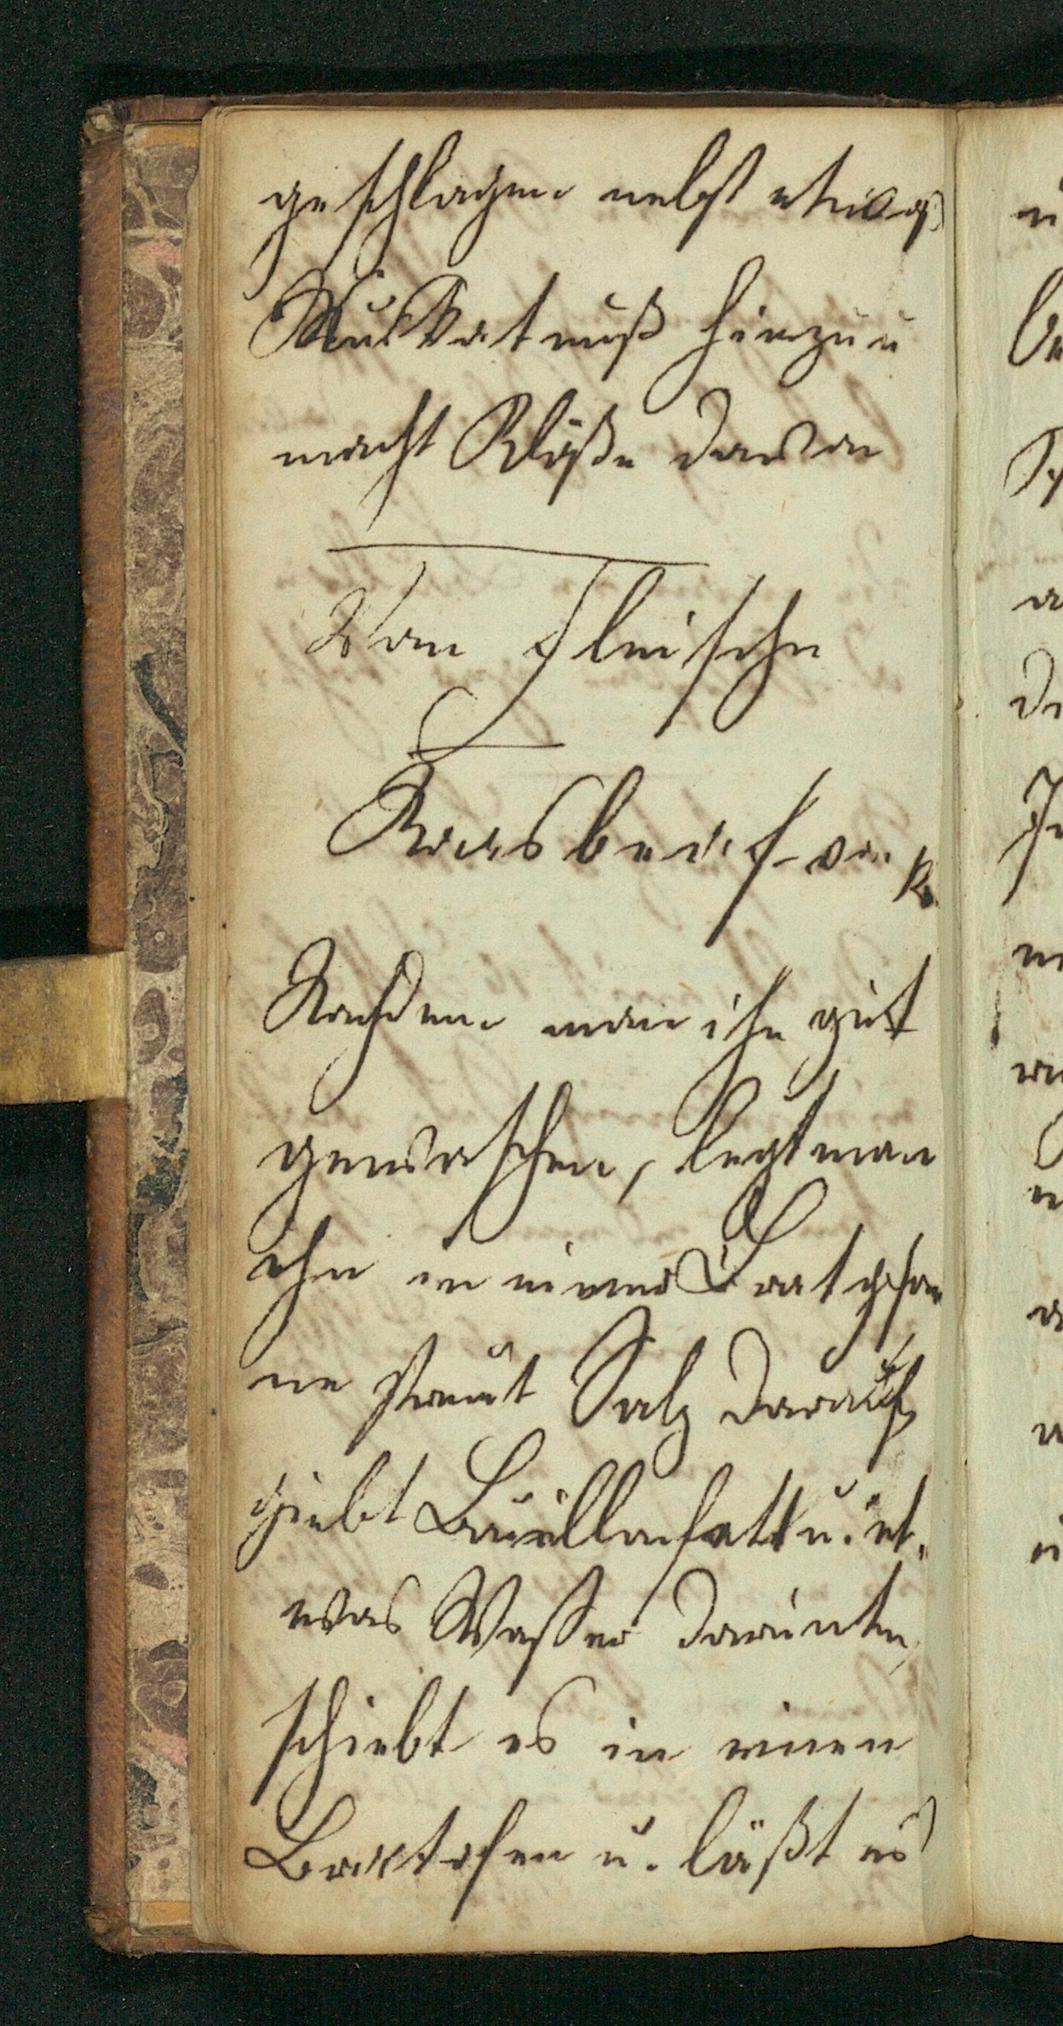 geschlagen nebst etwas
Muskatnuß hinzu u
macht Klöße davon
Von Fleische
Roasbeef
Nachdem man ihn gut
gewaschen, legt man
ihn in eine Bratpfan
ne streut Salz darauf,
giebt Bouillonfett u. et-
was Wasser darunter,
schiebt es in einen
Bratofen u. läßt es